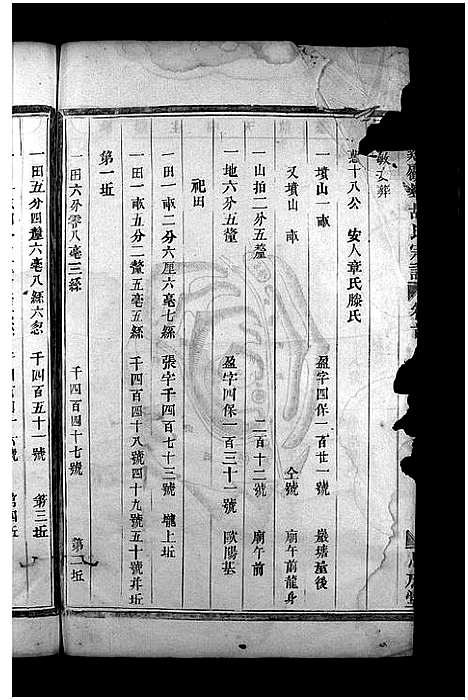 敏文葬
十八公　安人章氏滕氏
一墳山一畝　盈字四保一百廿一號　巖塘㙜後
又墳山畝　仝號　廟午前龍身
一山拍二分五釐　二百十二號　廟午前
一地六分五釐　盈字四保一百三十一號　歐陽基
祀田
一田一畝二分六厘六毫七絲　張字千四百七十三號　壠上坵
一田一畝五分二釐五毫五絲　千四百四十八號四十九號五十號共坵
第一坵
一田六分零八毫三絲　千四百四十七號　第二坵
一田五分四釐六毫八絲六忽　千四百五十一號　第三坵
號　第四坵